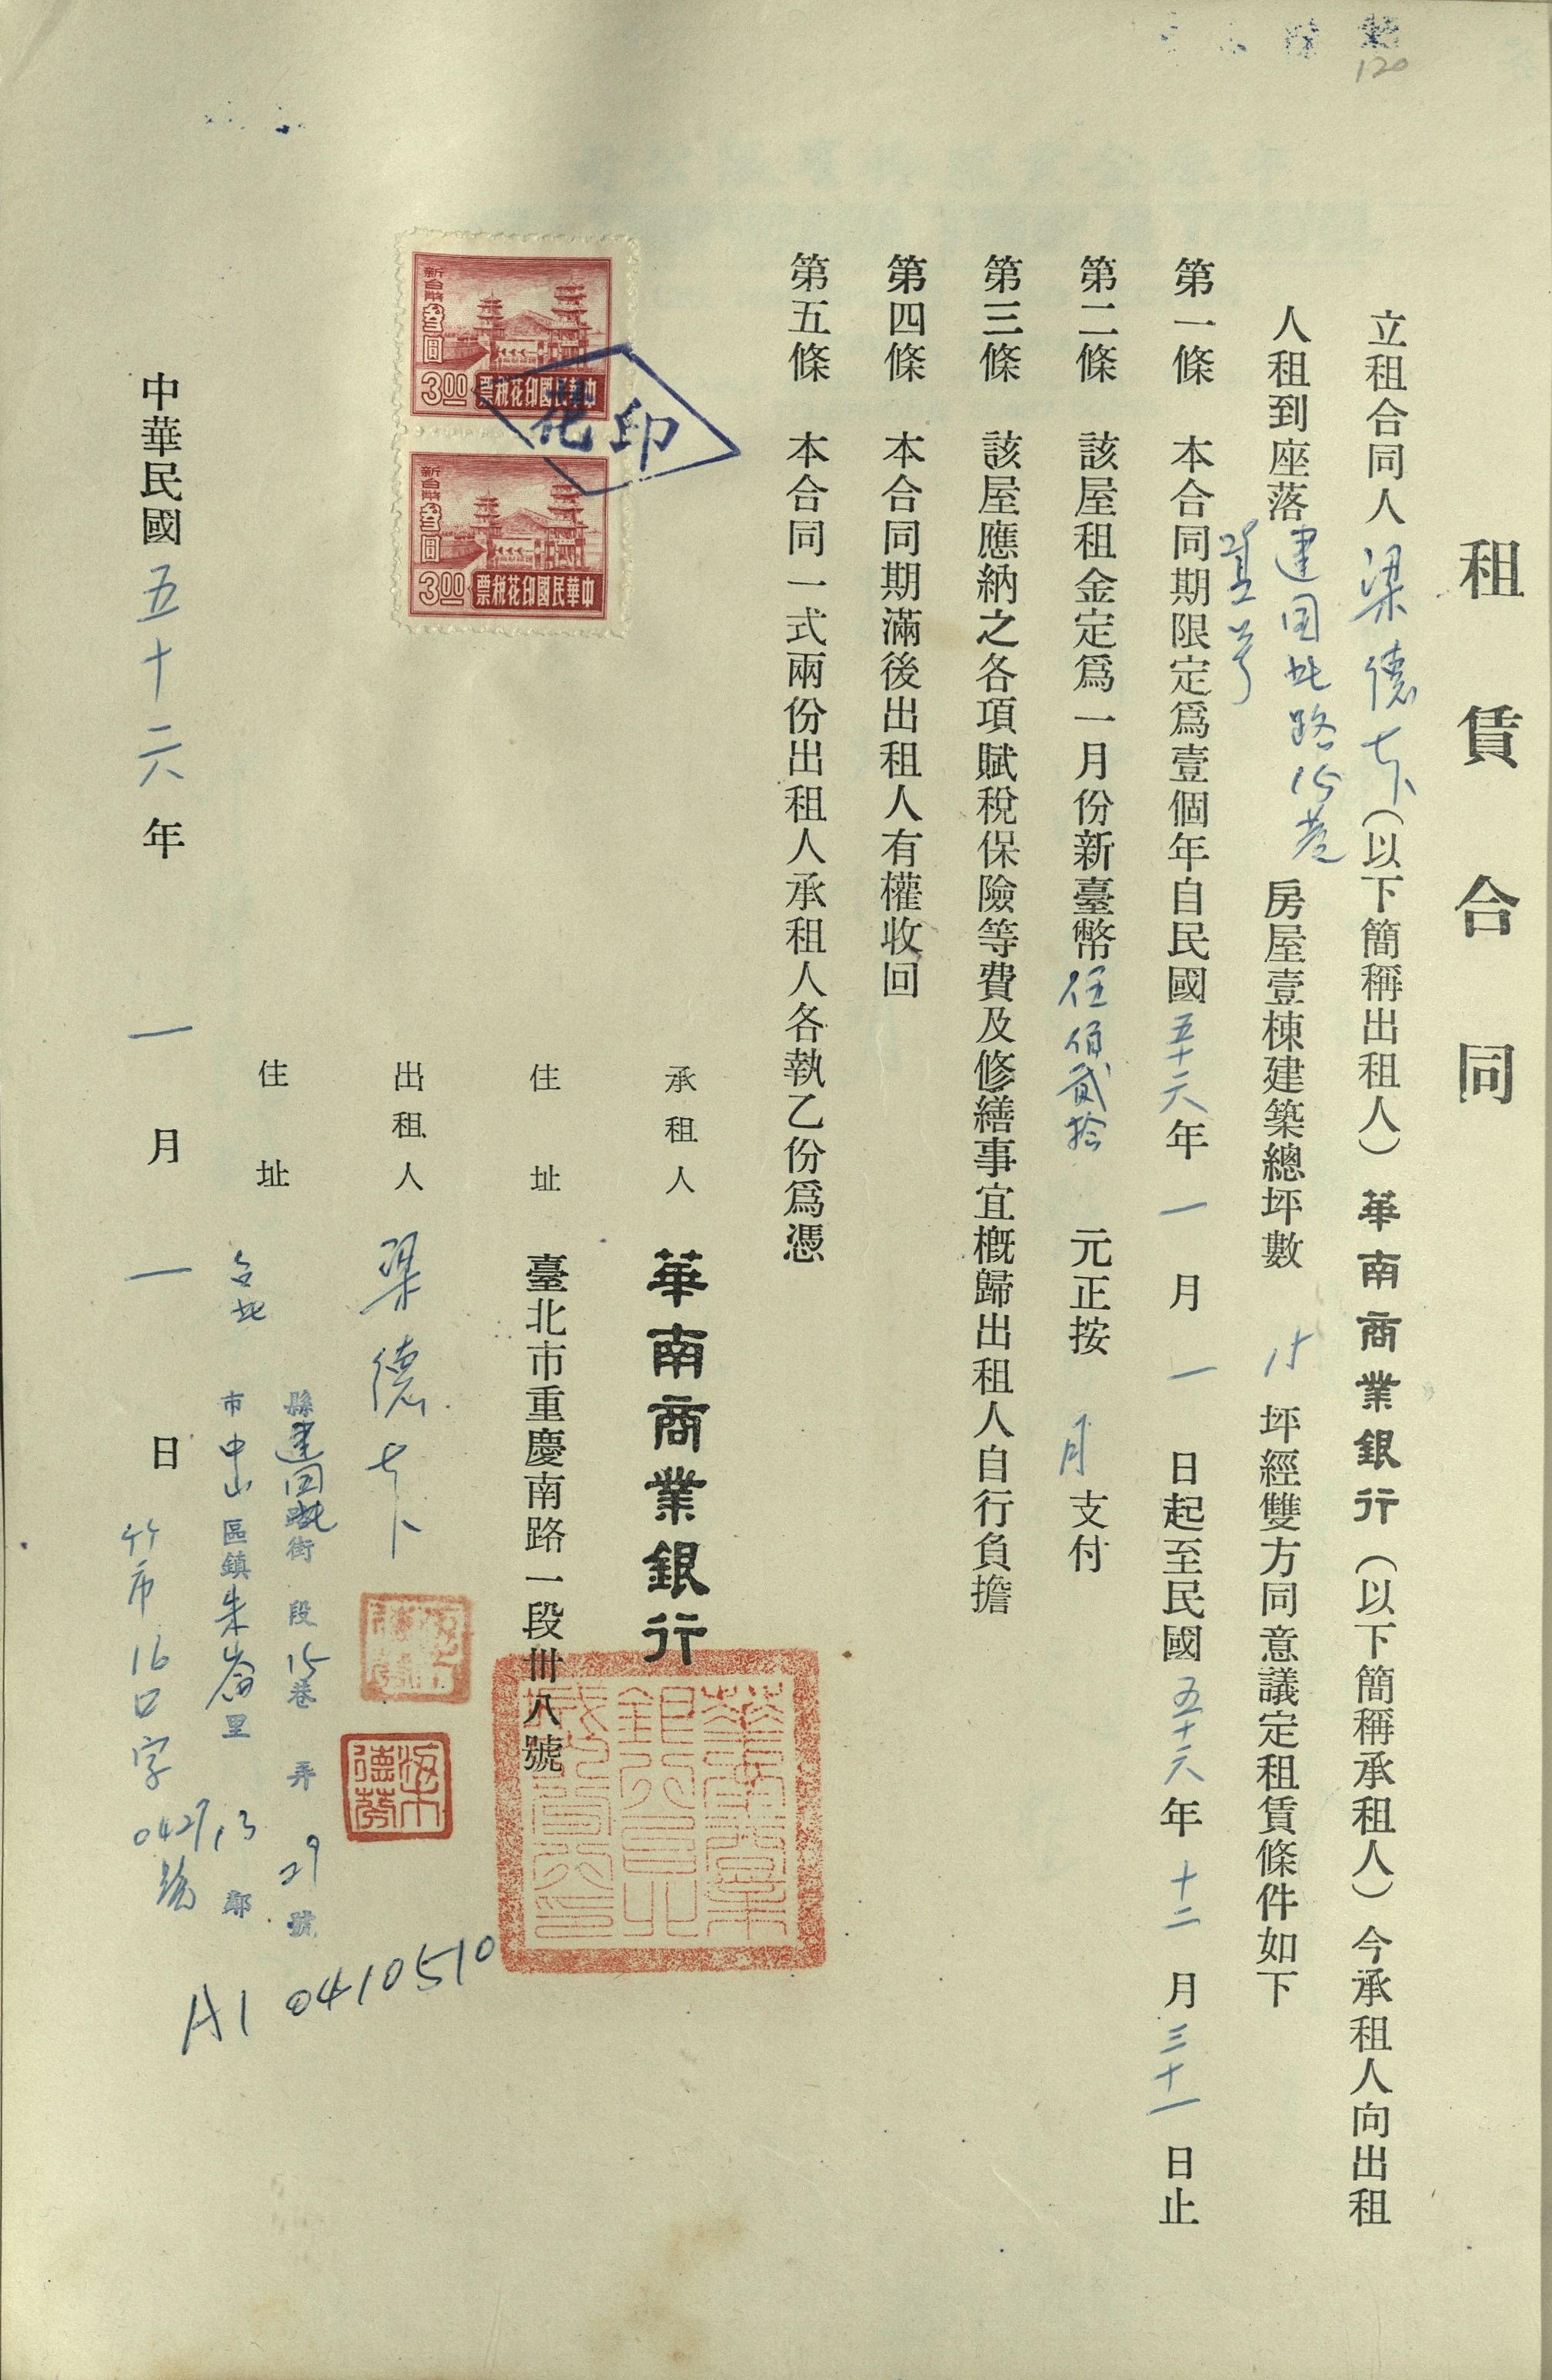 120
租賃合同
立租合同人梁德(以下簡稱出租人)華南商業銀行(以下簡稱承租人)今承租人向出租
人租到座落建国北路15巷房屋壹棟建築總坪數15坪經雙方同意議定租賃條件如下
第一條 本合同期限定爲壹個年自民國五十六年一月一日起至民國五十六年十二月三十一日止
第二條 該屋租金定爲一月份新臺幣伍佰貳拾元正按月支付
第三條 該屋應納之各項賦稅保險等費及修繕事宜概歸出租人自行負擔
第四條 本合同期滿後出租人有權收回
第五條 本合同一式兩份出租人承租人各執乙份爲憑
承租人 華南商業銀行
住址 臺北市重慶南路一段卅八號
新台幣叁圓
3.00
中華民國印花稅票
新台幣叁圓
3.00
中華民國印花稅票
印花
出租人 梁德
住址 台北
縣建国北街段15巷弄29號
市中山區鎮朱崙里13鄰
竹市16口字0427號
A1 0410510
中華民國五十六年一月一日